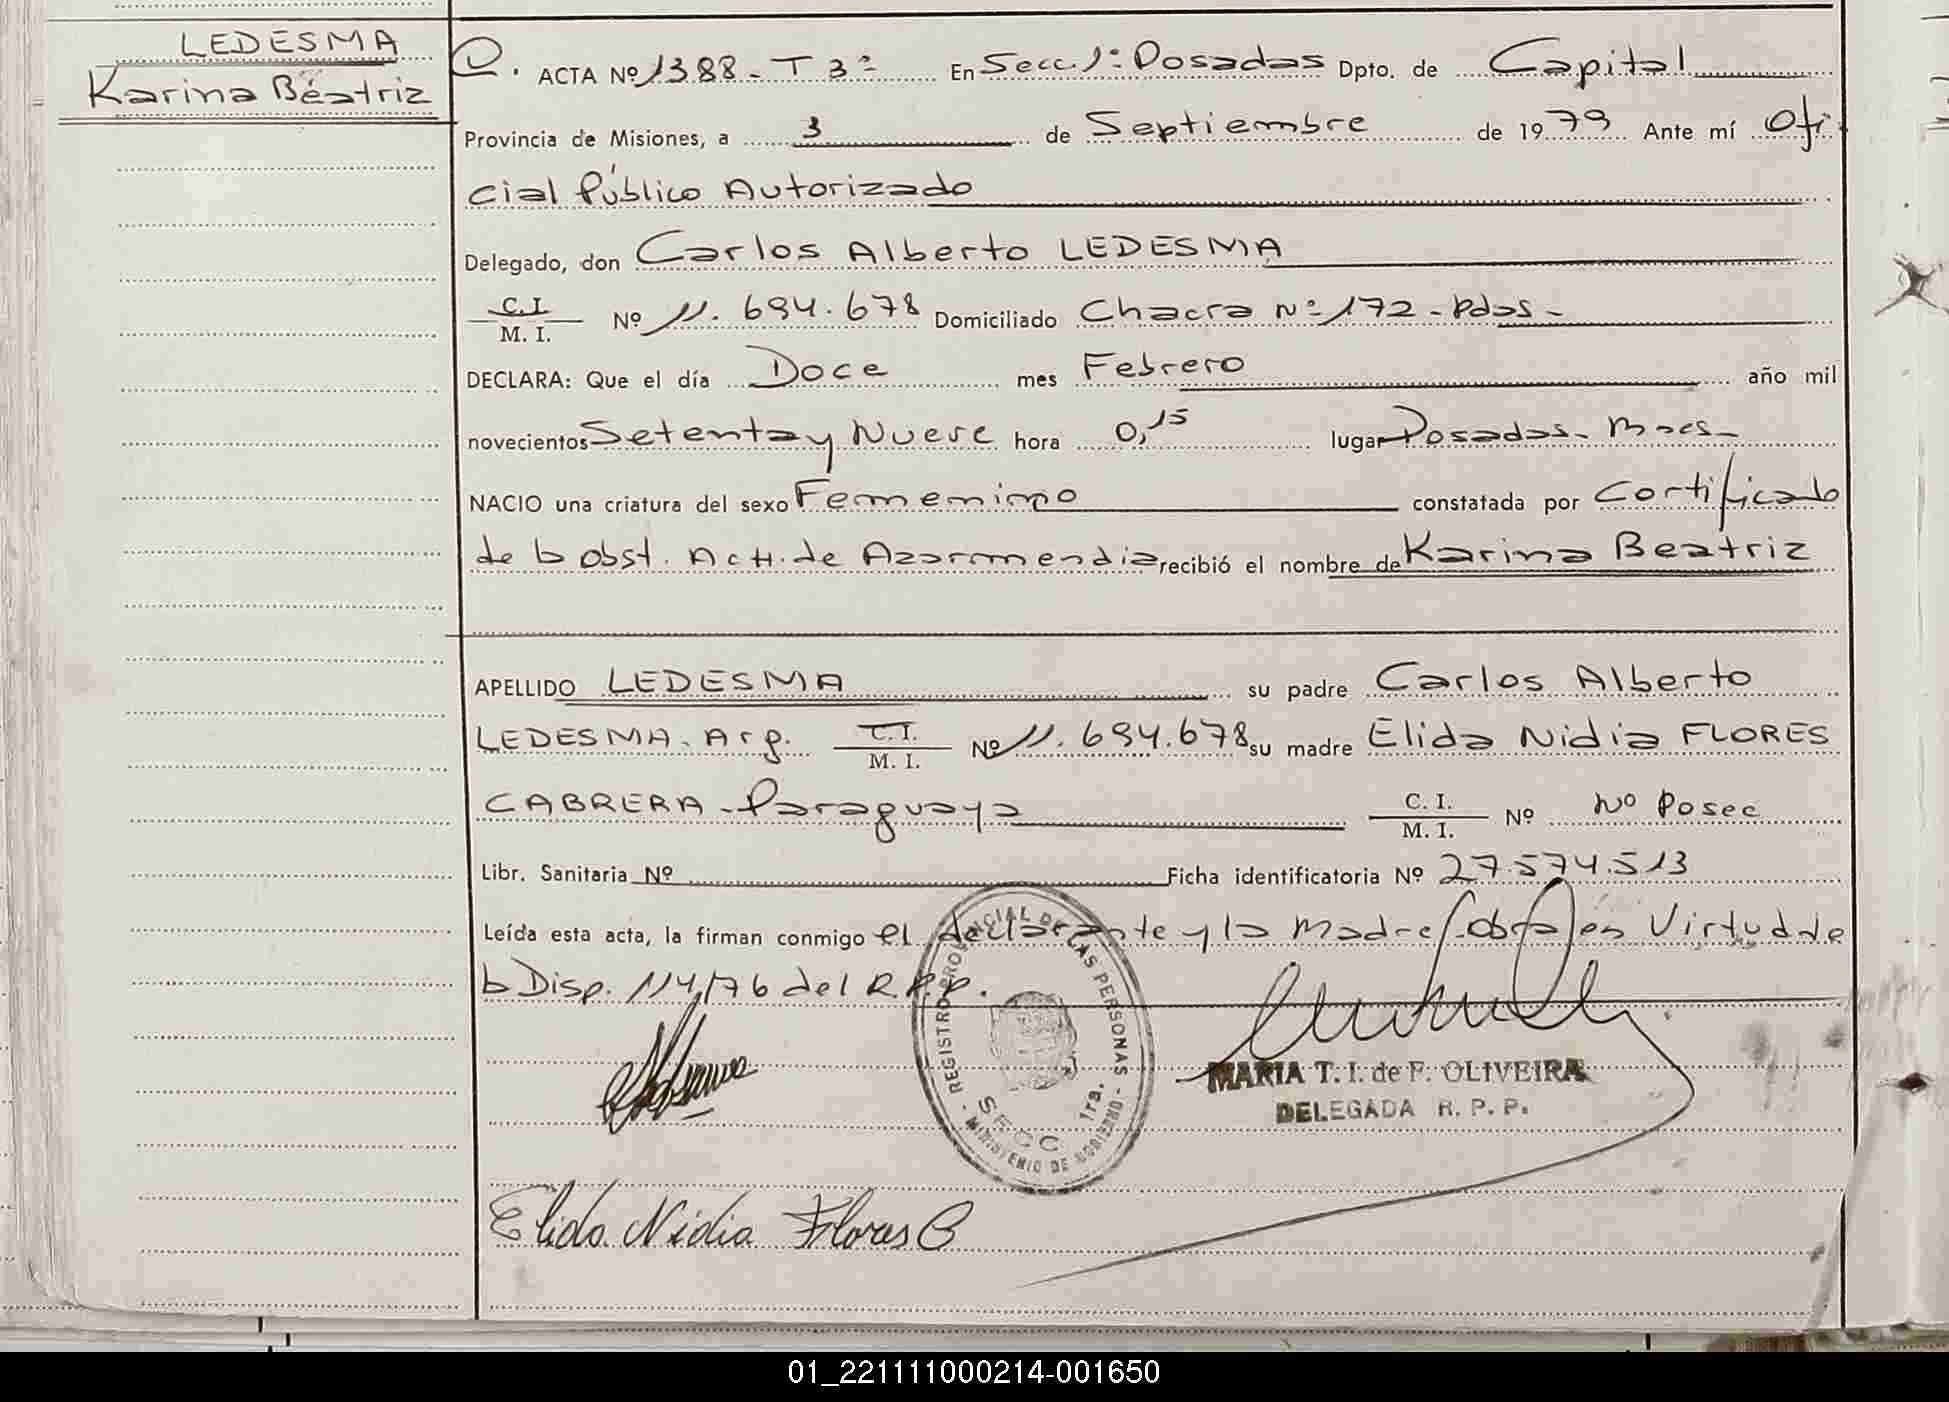 LEDESMA
Karina Beatriz
ACTA Nº 1388 - T 3º En Secc. 1º: Posadas Dpto. de Capital
Provincia de Misiones, a 3 de Septiembre de 1979 Ante mí Ofi
cial Público Autorizado
Delegado, don Carlos Alberto LEDESMA
C.I
M. I. Nº 11.694.678 Domiciliado Chacra Nº 172 - Pdas -
DECLARA: Que el día Doce mes Febrero año mil
novecientos Setenta y Nueve hora 0,15 lugar Posadas - Mnes -
NACIO una criatura del sexo Femenino constatada por Certificado
de la obst. A. H. de Azarmendia recibió el nombre de Karina Beatriz
APELLIDO LEDESMA su padre Carlos Alberto
LEDESMA. Arg. C.I.
M. I. Nº 11.694.678 su madre Elida Nidia FLORES
CABRERA - Paraguaya C. I.
M. I. Nº Nº Posee
Libr. Sanitaria Nº Ficha identificatoria Nº 27.574.513
Leída esta acta, la firman conmigo el declarante y la Madre, Labra en Virtud de
la Disp. 114/76 del R.P.P.
REGISTRO PROVINCIAL DE LAS PERSONAS
SECC 1ra.
- MINISTERIO DE GOBIERNO -
MARIA T. I. de F. OLIVEIRA
DELEGADA R. P. P.
Elida Nidia Flores C
01_221111000214-001650